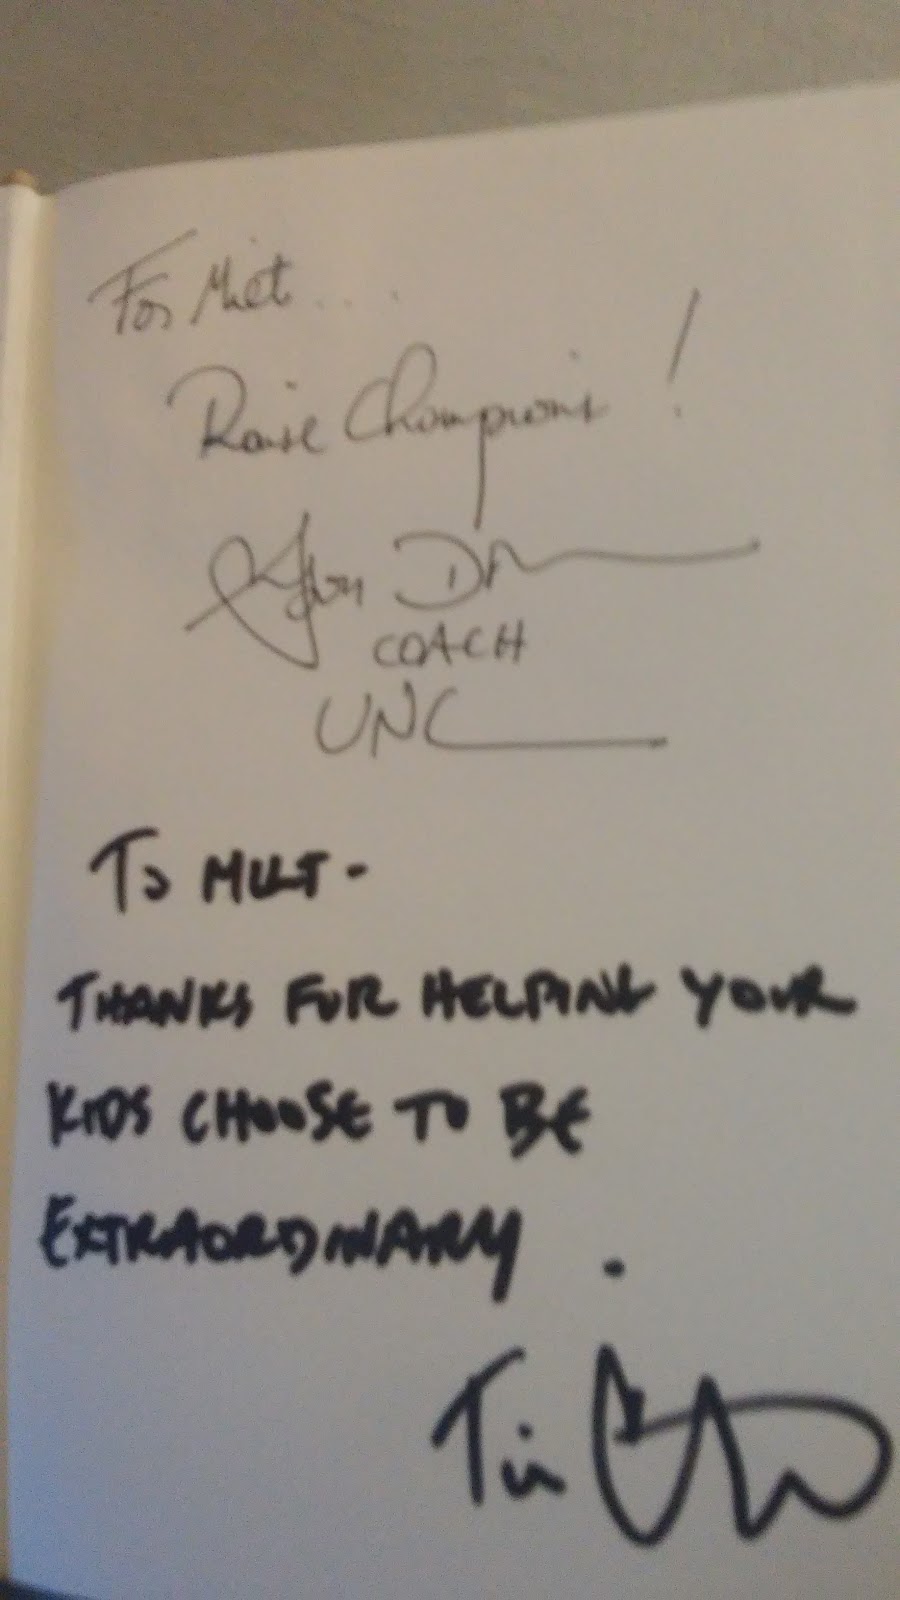 For Milt....
Raise Champions!
COACH
UNC
To MILT-
THANKS FOR HELPING YOUR
KIDS CHOOSE TO BE
EXTRAORDINARY.
Tim